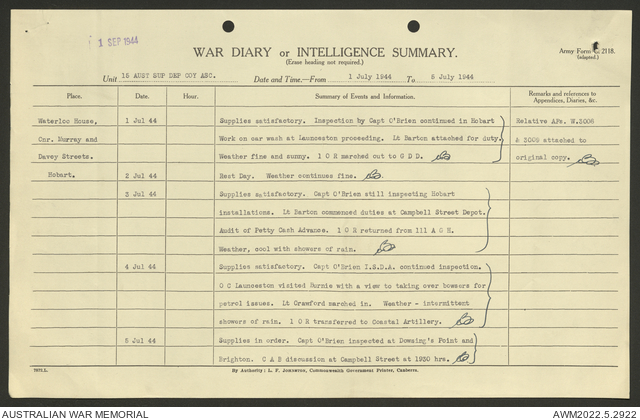 1 SEP 1944
WAR DIARY or INTELLIGENCE SUMMARY.
(Erase heading not required).
Army Form C. 2118.
(adapted.)
Unit 15 AUST SUP DEP COY ASC. Date and Time.—From 1 July 1944 To 5 July 1944
Place. Date. Hour. Summary of Events and Information. Remarks and references to Appendices, Diaries, &c.
Waterloo House, 1 Jul 44 Supplies satisfactory. Inspection by Capt O'Brien continued in Hobart Relative AFs. W.3008
Cnr. Murray and Work on car wash at Launceston proceeding. Lt Barton attached for duty. & 3009 attached to
Davey Streets. Weather fine and sunny. 1 O R marched out to G D D. original copy.
Hobart. 2 Jul 44 Rest Day. Weather continues fine.
3 Jul 44 Supplies satisfactory. Capt O'Brien still inspecting Hobart
installations. Lt Barton commenced duties at Campbell Street Depot.
Audit of Petty Cash Advance. 1 O R returned from 111 A G H.
Weather, cool with showers of rain.
4 Jul 44 Supplies satisfactory. Capt O'Brien I.S.D.A. continued inspection.
O C Launceston visited Burnie with a view to taking over bowsers for
petrol issues. Lt Crawford marched in. Weather - intermittent
showers of rain. 1 O R transferred to Coastal Artillery.
5 Jul 44 Supplies in order. Capt O'Brien inspected at Dowsing's Point and
Brighton. C A B discussion at Campbell Street at 1930 hrs.
By Authority: L. F. Johnston, Commonwealth Government Printer, Canberra.
AUSTRALIAN WAR MEMORIAL AWM2022.5.2922